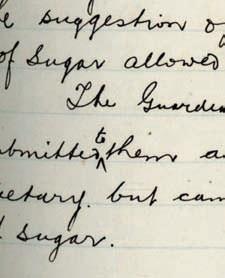 e suggestion o
of Sugar allowed
The Guardia
ubmitted to them a
ietary. but cam
d sugar.